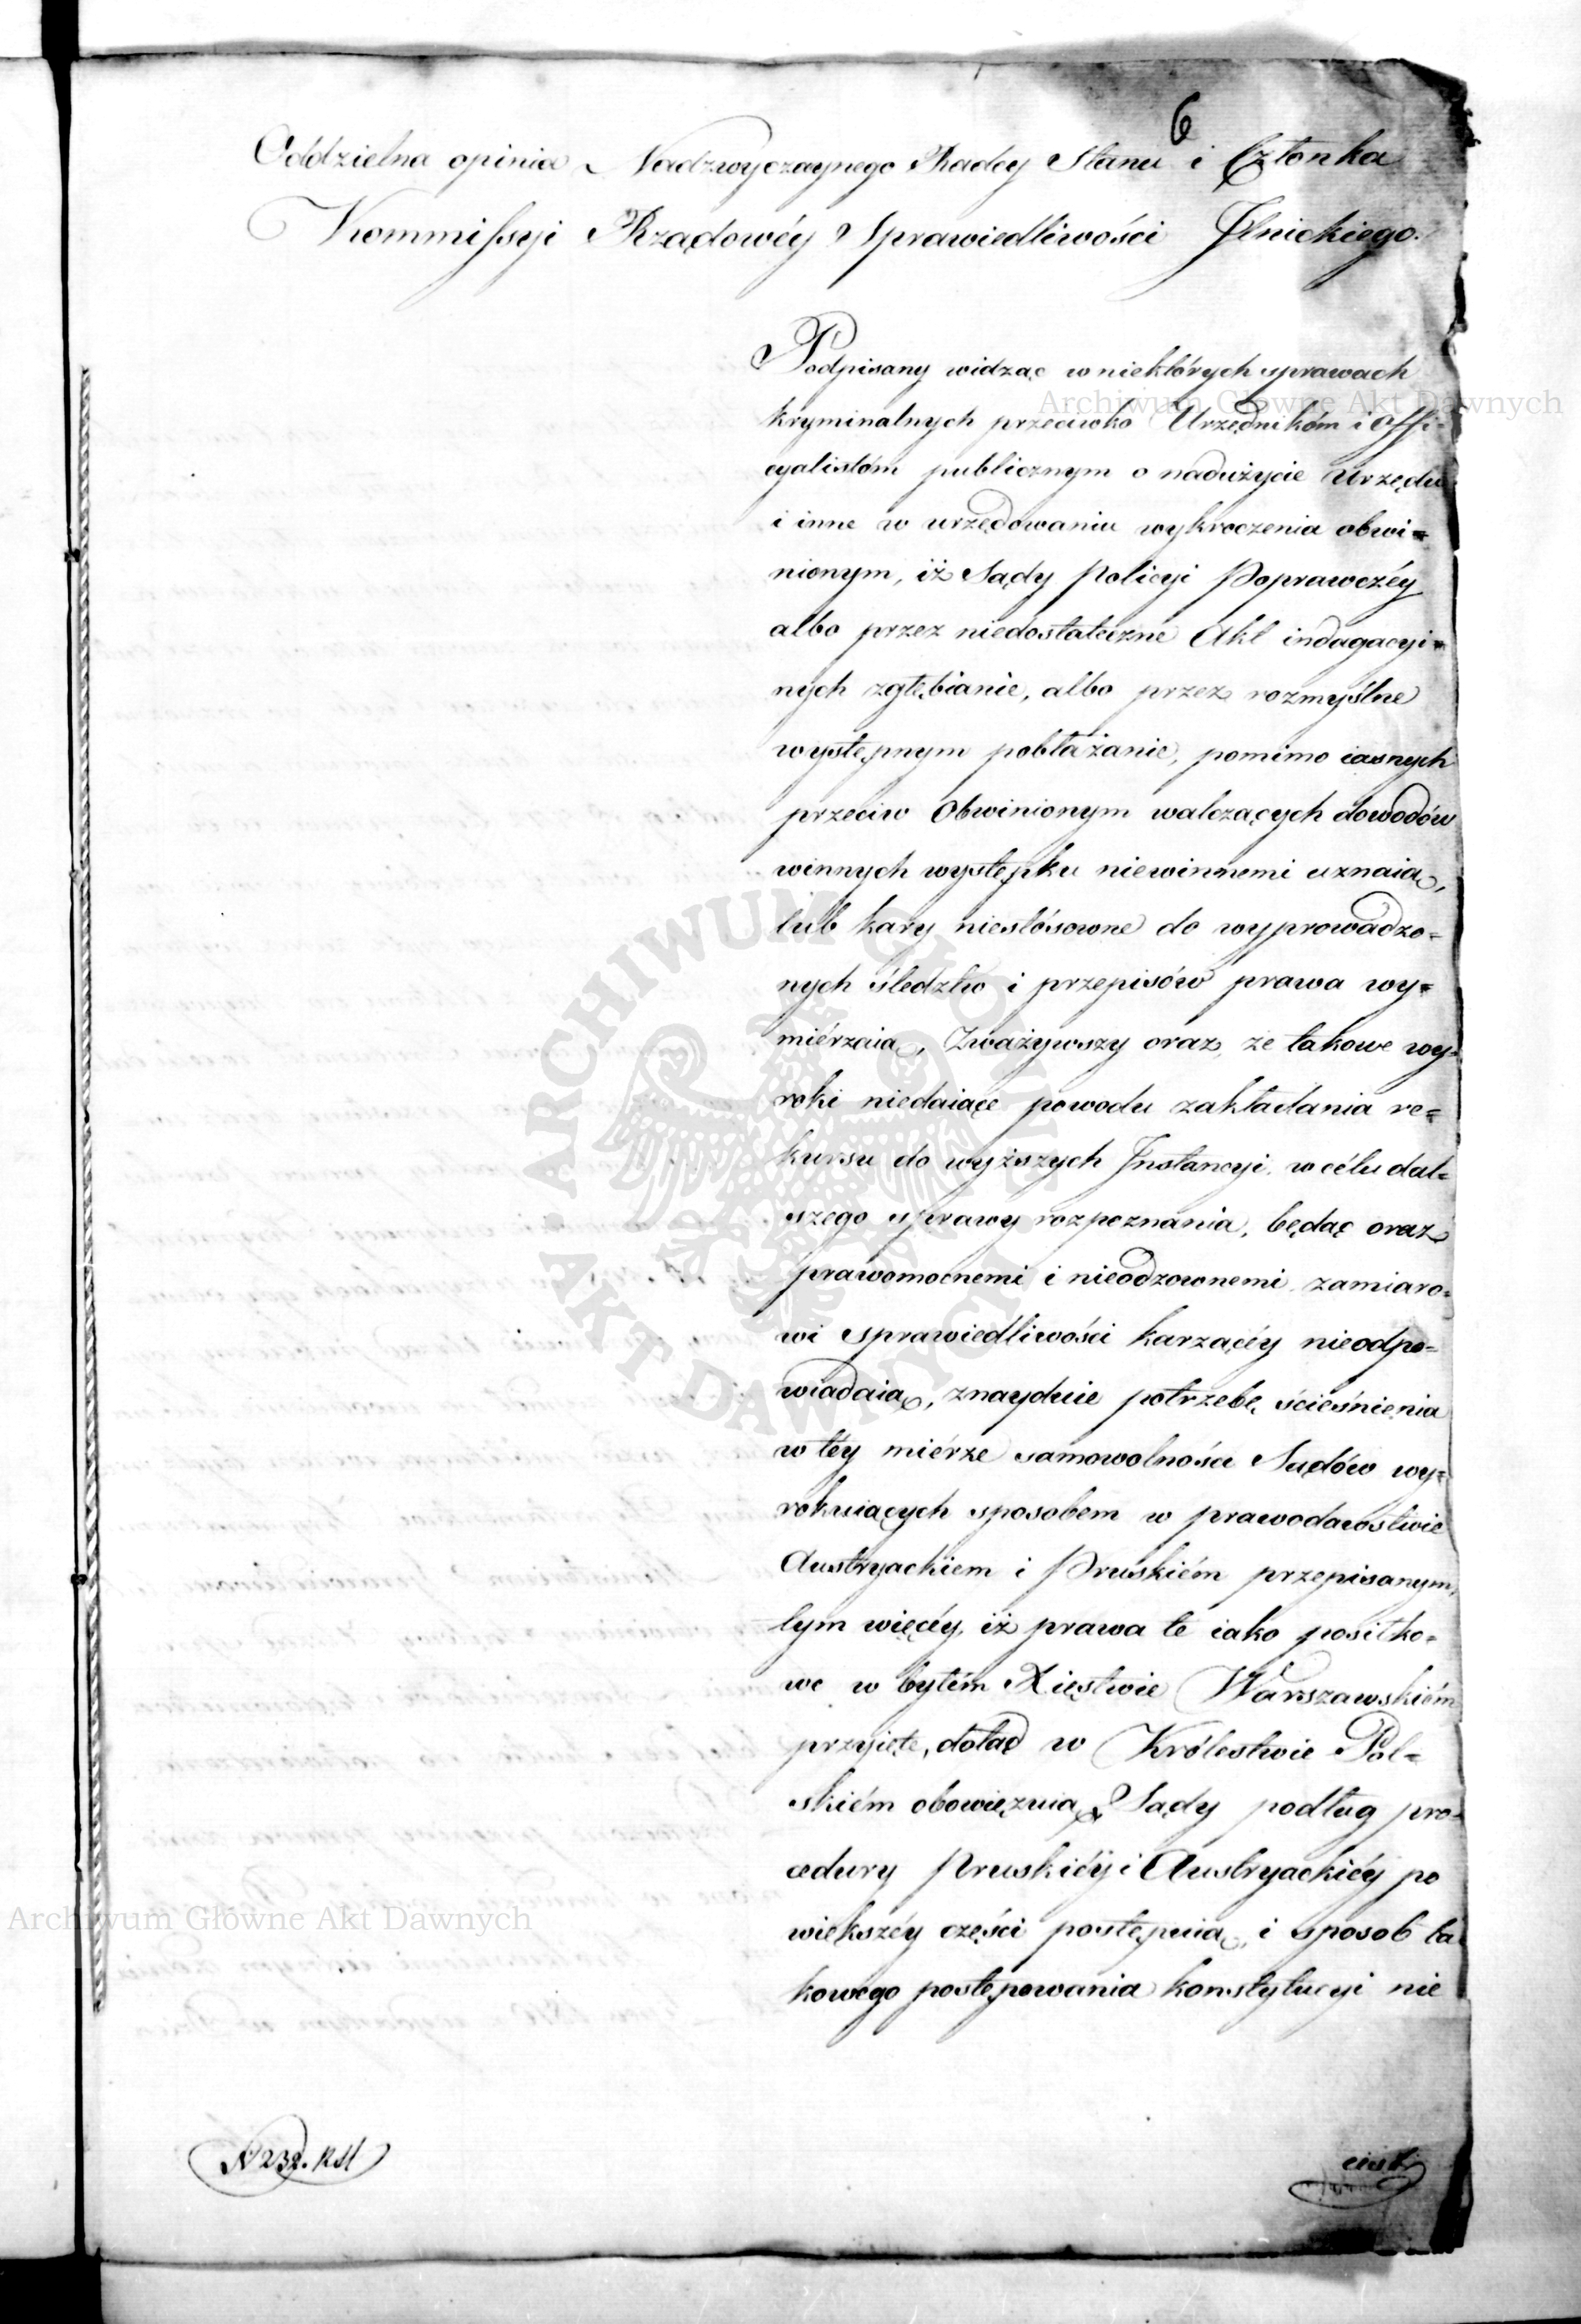 6
Oddzielna opinia Nadzwyczaynego Radcy Stanu i Członka
Kommissyi Rządowéy Sprawiedliwości Ilnickiego.
Podpisany widząc w niektórych sprawach
kryminalnych przeciwko Urzędnikóm i Offi=
cyalistóm publicznym o nadużycie Urzędu
i inne w urzędowaniu wykroczenia obwi=
nionym, iż Sądy Policyi Poprawczéy
albo przez niedostateczne Akt indagacyi=
nych zgłębianie, albo przez rozmyślne
występnym pobłażanie, pomimo iasnych
przeciw Obwinionym walczących dowodów
winnych występku niewinnemi uznaią,
lub kary niestósowne do wyprowadzo=
nych śledztw i przepisów prawa wy=
miérzaią, Zważywszy oraz, że takowe wy=
roki niedaiąc powodu zakładania re=
kursu do wyższych Instancyi, w célu dal=
szego sprawy rozpoznania, będąc oraz
prawomocnemi i nieodzownemi, zamiaro=
wi sprawiedliwości karzącéy nieodpo=
wiadaią, znayduie potrzebę ścieśnienia
w téy miérze samowolności Sądów wy=
rokuiących sposobem w prawodawstwie
Austryackiem i Pruskiém przepisanym,
tym więcéy, iż prawa te iako posiłko=
we w byłém Xięstwie Warszawskiém
przyięte, dotąd w Królestwie Pol=
skiém obowięzuią, Sądy podług pro=
cedury Pruskiéy i Austryackiéy po
większéy części postępuią, i sposób ta
kowego postępowania konstytucyi nie
N 232. RSt
Archiwum Główne Akt Dawnych
Archiwum Główne Akt Dawnych
· ARCHIWUM GŁÓWNE · AKT DAWNYCH